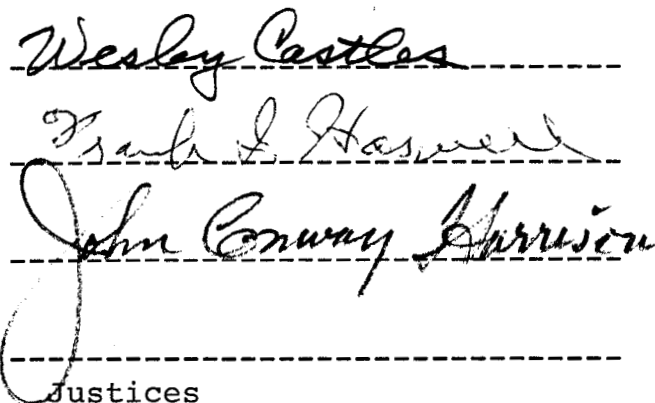 Wesley Castles
Frank I. Haswell
John Conway Harrison
Justices